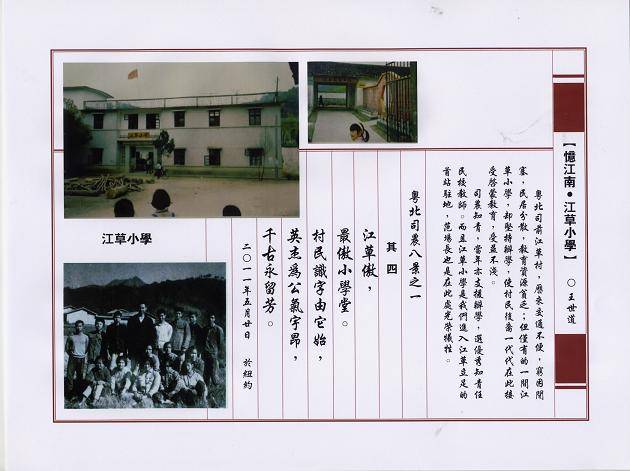 【憶江南•江草小學】 ○ 王世道
粵北司前江草村，歷來交通不便，窮困閉
塞，民居分散，教育資源貧乏；但僅有的一間江
草小學，却堅持辦學，使村民後裔一代代在此接
受啓蒙教育，受益不淺。
司農知青，當年亦支援辦學，選優秀知青任
民校教師。而且江草小學是我們進入江草立足的
首站駐地，范場長也是在此處光榮犧牲。
粵北司農八景之一
其四
江草傲，
最傲小學堂。
村民識字由它始，
英杰為公氣宇昂，
千古永留芳。
二〇一一年五月廿日 於紐約
江草小學
江草小學